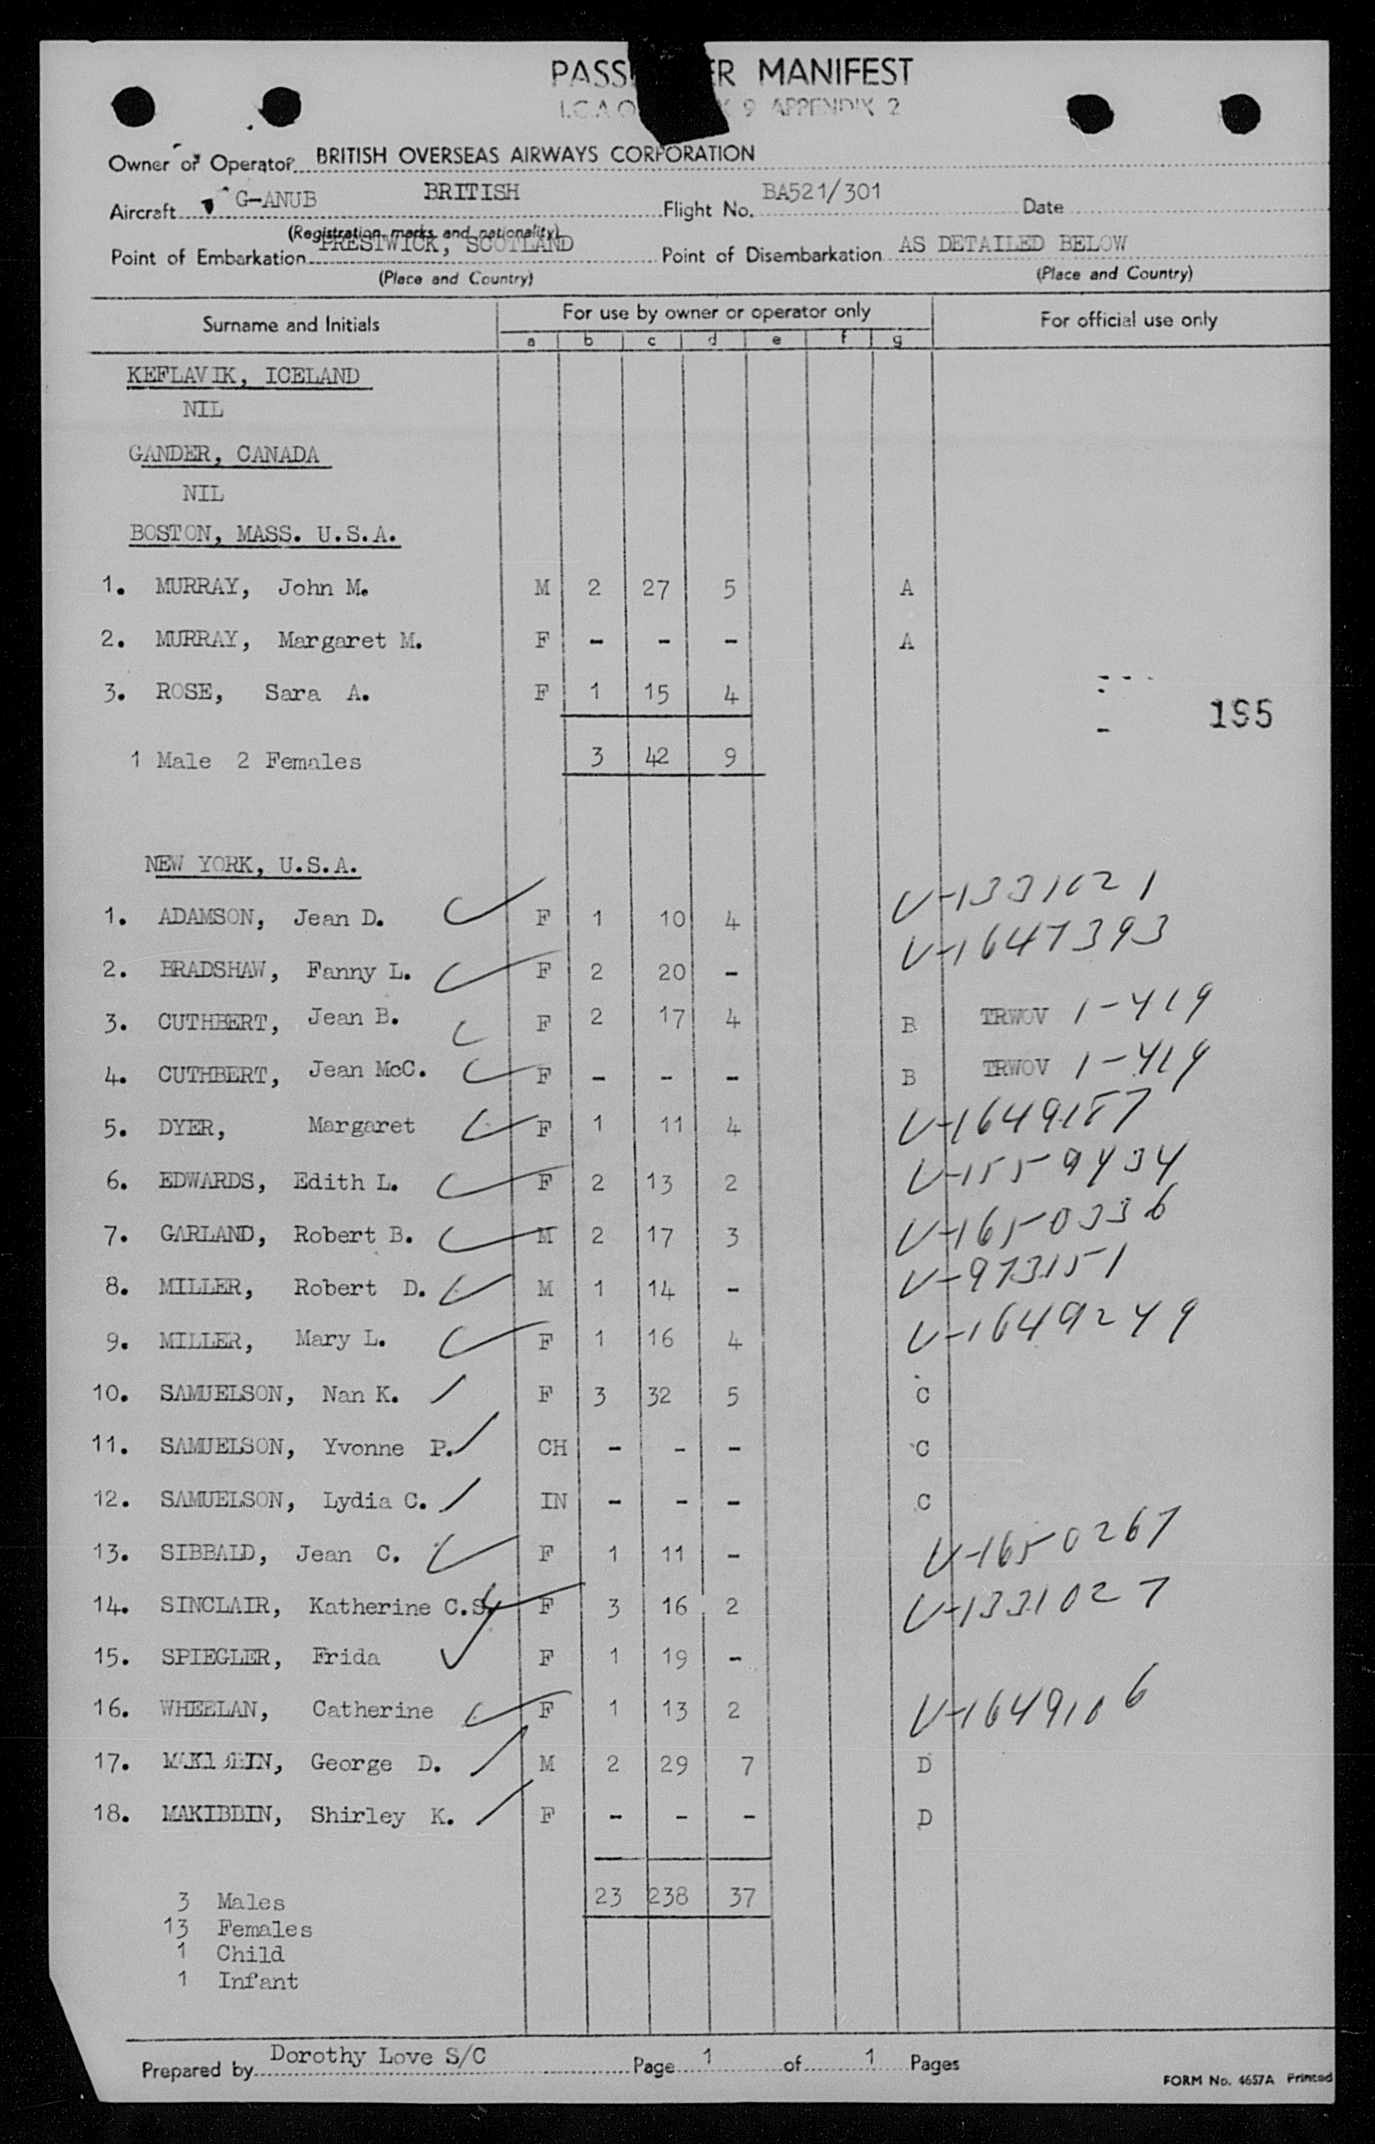 MANIFEST
9 APPENDIX 2
Owner or Operator BRITISH OVERSEAS AIRWAYS CORPORATION
Aircraft G-ANUB BRITISH Flight No. BA521/301 Date
(Registration marks and nationality)
Point of Embarkation PRESTWICK, SCOTLAND Point of Disembarkation AS DETAILED BELOW
(Place and Country) (Place and Country)
Surname and Initials For use by owner or operator only For official use only
a b c d e f g
KEFLAVIK, ICELAND
NIL
GANDER, CANADA
NIL
BOSTON, MASS. U.S.A.
1. MURRAY, John M. M 2 27 5 A
2. MURRAY, Margaret M. F - - - A
3. ROSE, Sara A. F 1 15 4
195
1 Male 2 Females 3 42 9
NEW YORK, U.S.A.
1. ADAMSON, Jean D. F 1 10 4 V-1331021
2. BRADSHAW, Fanny L. F 2 20 - V-1647393
3. CUTHBERT, Jean B. F 2 17 4 B TRWOV 1-419
4. CUTHBERT, Jean McC. F - - - B TRWOV 1-419
5. DYER, Margaret F 1 11 4 V-1649187
6. EDWARDS, Edith L. F 2 13 2 V-1559434
7. GARLAND, Robert B. M 2 17 3 V-1650336
8. MILLER, Robert D. M 1 14 - V-973151
9. MILLER, Mary L. F 1 16 4 V-1649249
10. SAMUELSON, Nan K. F 3 32 5 C
11. SAMUELSON, Yvonne P. CH - - - C
12. SAMUELSON, Lydia C. IN - - - C
13. SIBBALD, Jean C. F 1 11 - V-1650267
14. SINCLAIR, Katherine C.S. F 3 16 2 V-1331027
15. SPIEGLER, Frida F 1 19 -
16. WHEELAN, Catherine F 1 13 2 V-1649106
17. MAKIBBIN, George D. M 2 29 7 D
18. MAKIBBIN, Shirley K. F - - - D
23 238 37
3 Males
13 Females
1 Child
1 Infant
Prepared by Dorothy Love S/C Page 1 of 1 Pages
FORM No. 4657A Printed